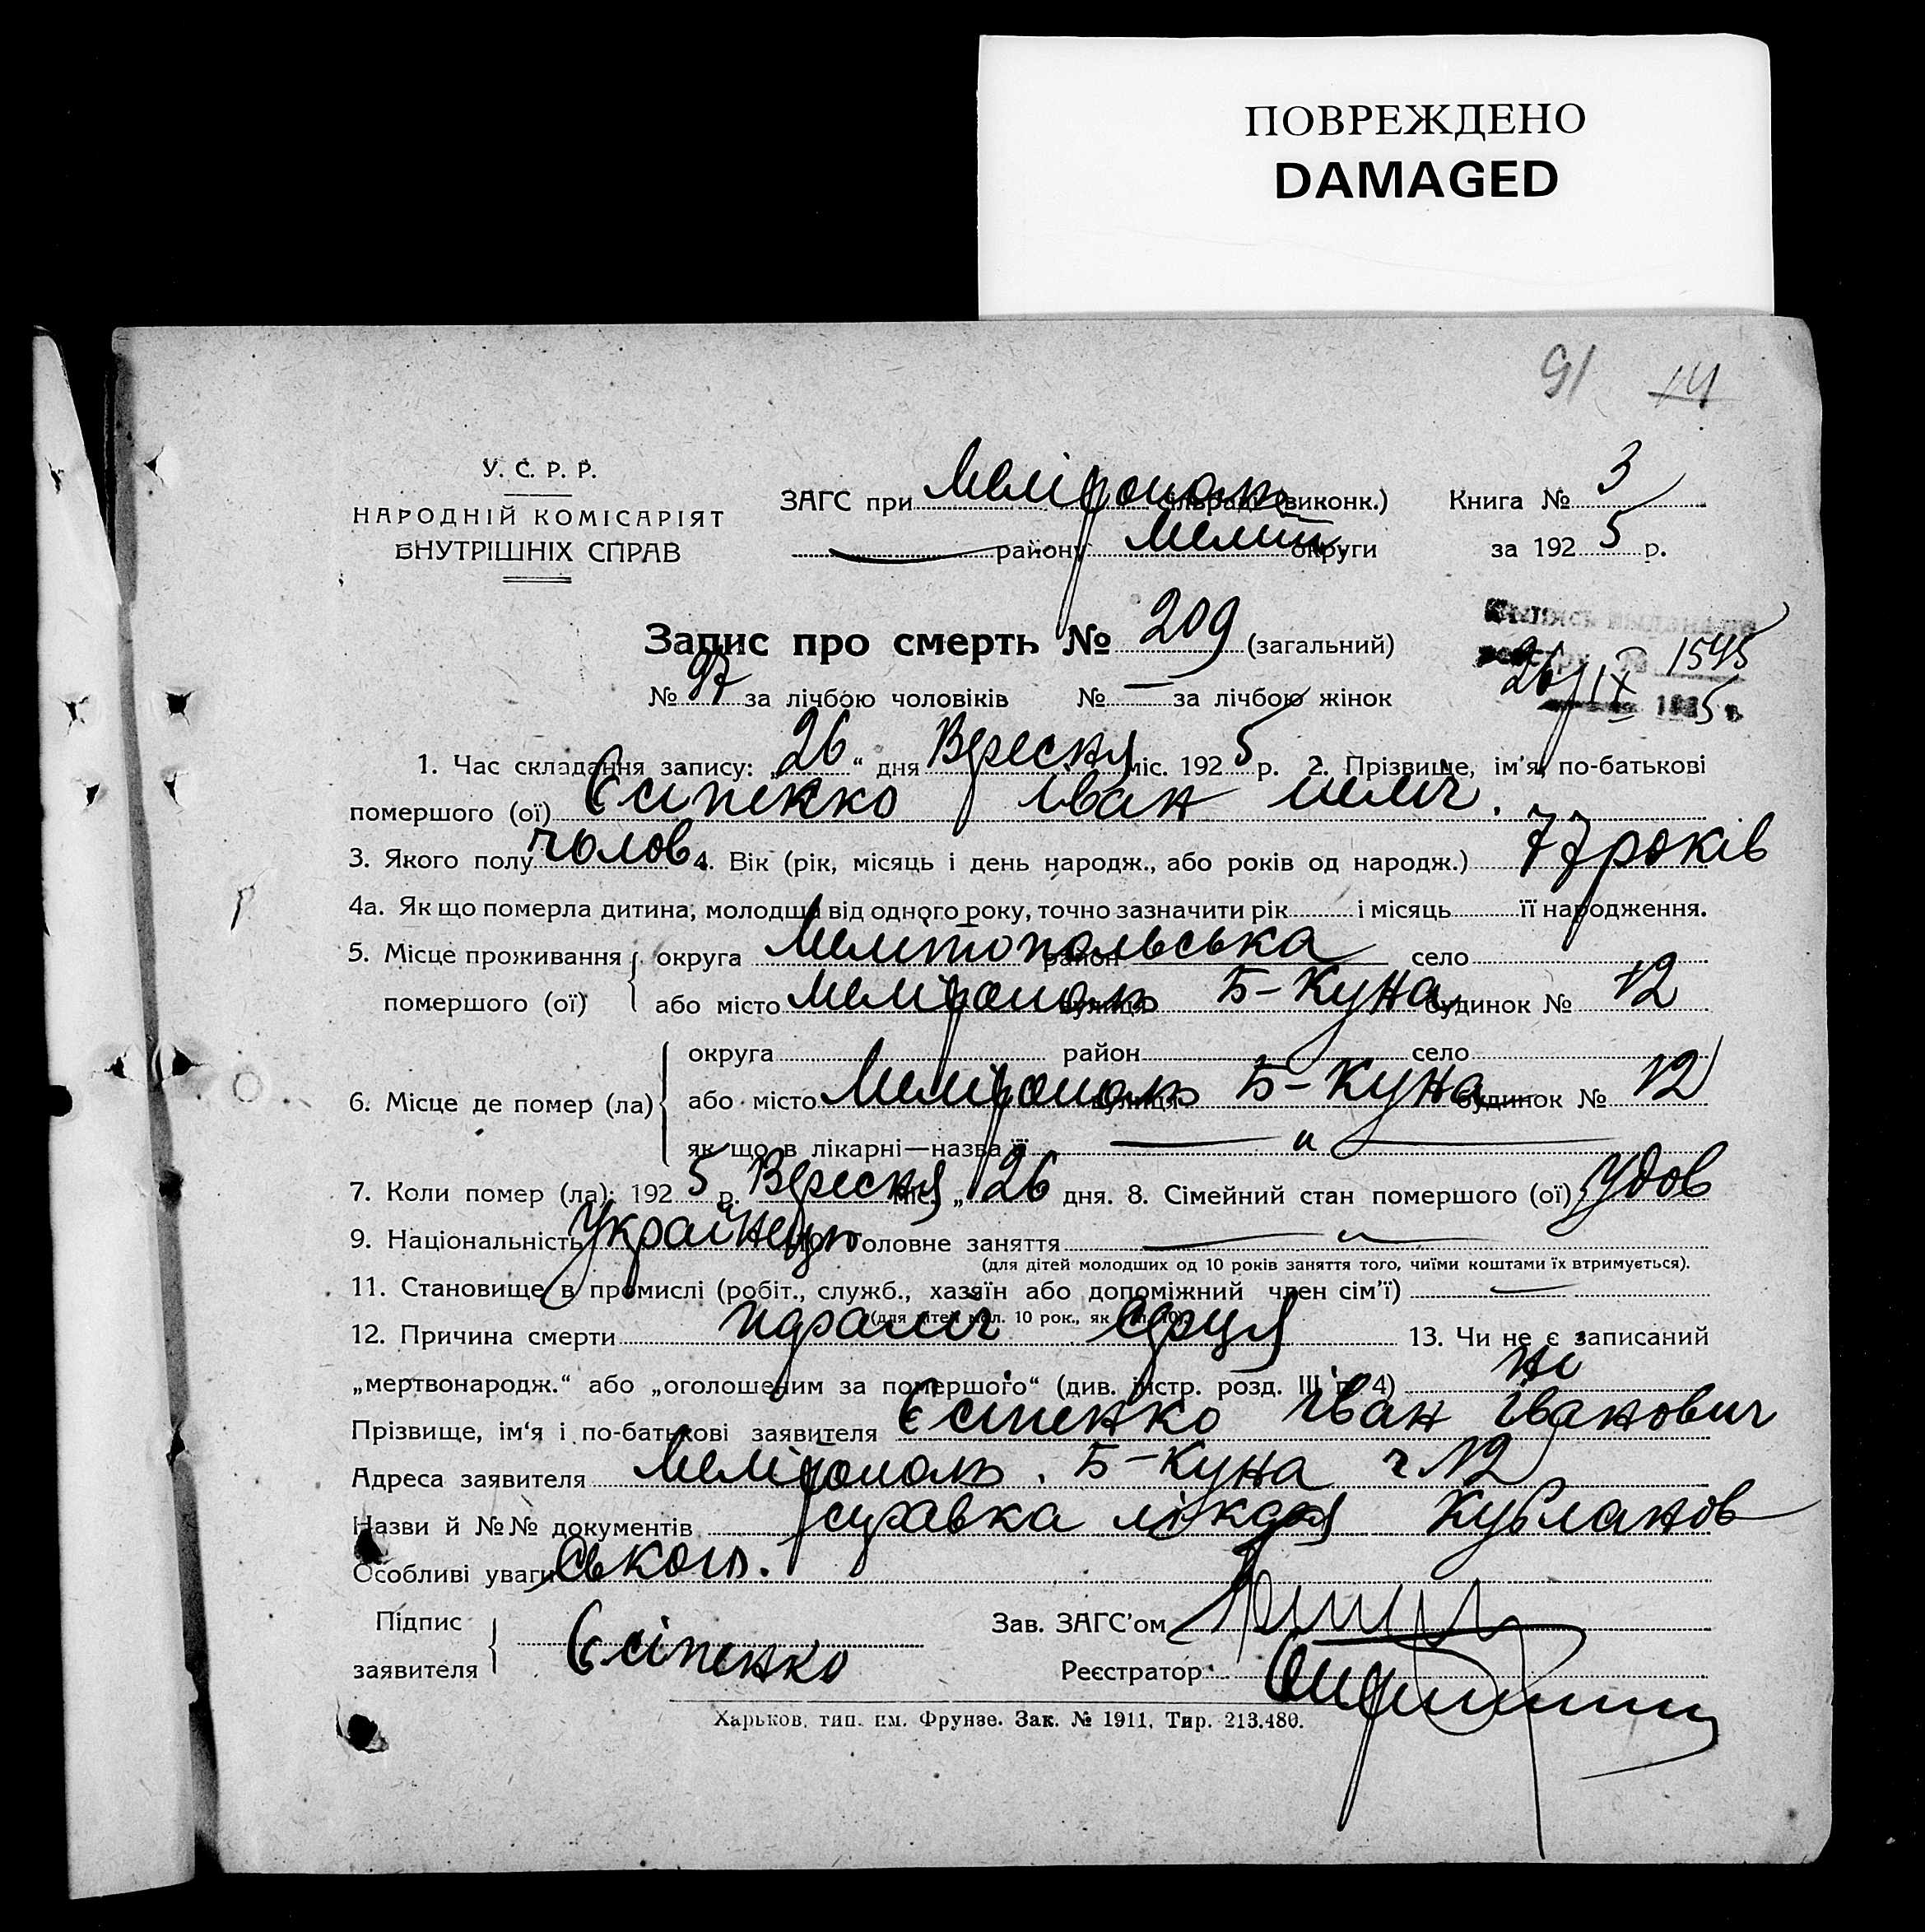 ПОВРЕЖДЕНО
DAMAGED
91 14
У. С. Р. Р.
НАРОДНІЙ КОМІСАРІЯТ
ВНУТРІШНІХ СПРАВ
ЗАГС при Мелітополь сільраді (виконк.) Книга № 3
району Меліт. округи за 1925 р.
Запис про смерть № 209 (загальний)
№ 97 за лічбою чоловіків № — за лічбою жінок
1595
26/IX 1925 г.
1. Час складання запису: „26“ дня Вересня міс. 1925 р. 2. Прізвище, ім'я, по-батькові
помершого (ої) Єсіпенко Іван
3. Якого полу чолов. 4. Вік (рік, місяць і день народж., або років од народж.) 77 років
4а. Як що померла дитина, молодша від одного року, точно зазначити рік і місяць її народження.
5. Місце проживання округа Мелітопольська район — село
помершого (ої) або місто Мелітополь вулиця Б-Куна будинок № 12
округа район село
6. Місце де помер (ла) або місто Мелітополь вулиця Б-Куна будинок № 12
як що в лікарні—назва її — „ —
7. Коли помер (ла): 1925 р. Вересня міс. „26 дня. 8. Сімейний стан помершого (ої) удов
9. Національність Українець 10. Головне заняття — „ —
(для дітей молодших од 10 років заняття того, чиїми коштами їх втримується).
11. Становище в промислі (робіт., служб., хазяїн або допоміжний член сім'ї) —
(для дітей мол. 10 рок., як в п. 10).
12. Причина смерти параліч серця 13. Чи не є записаний
„мертвонародж.“ або „оголошеним за помершого“ (див. інстр. розд. III п. 4) ні
Прізвище, ім'я і по-батькові заявителя Єсіпенко Іван Іванович
Адреса заявителя Мелітополь. Б-Куна ч 12
Назви й №№ документів справка лікаря Кубланов
Особливі уваги ського.
Підпис
заявителя Єсіпенко
Зав. ЗАГС'ом
Реєстратор
Харьков, тип. им. Фрунзе. Зак. № 1911. Тир. 213.480.